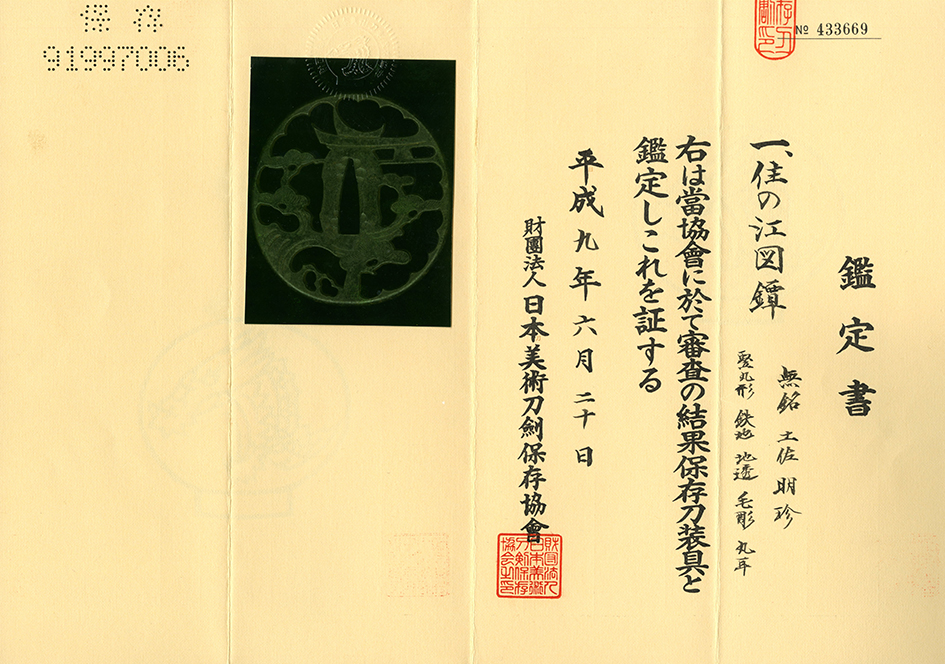 鑑定書
一、住の江図鐔
無銘 土佐明珍
竪丸形 鉄地 地透 毛彫 丸耳
右は當協會に於て審査の結果保存刀装具と
鑑定しこれを証する
平成九年六月二十日
財團法人 日本美術刀劍保存協會
財団法人日本美術刀剣保存協会之印
№ 433669
保存
91997006